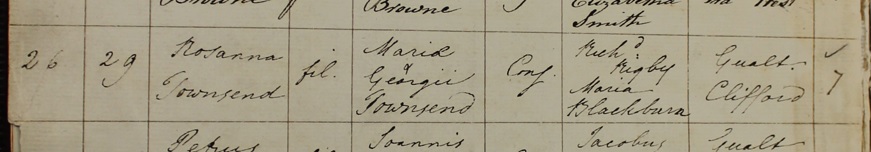 Browne
Browne
Smith
26 29 Rosanna Townsend fil. Mariæ & Georgii Townsend Conj. Rich^d Rigby Maria Blackburn Gualt. Clifford 7
Petrus Joannis Jacobus Gualt